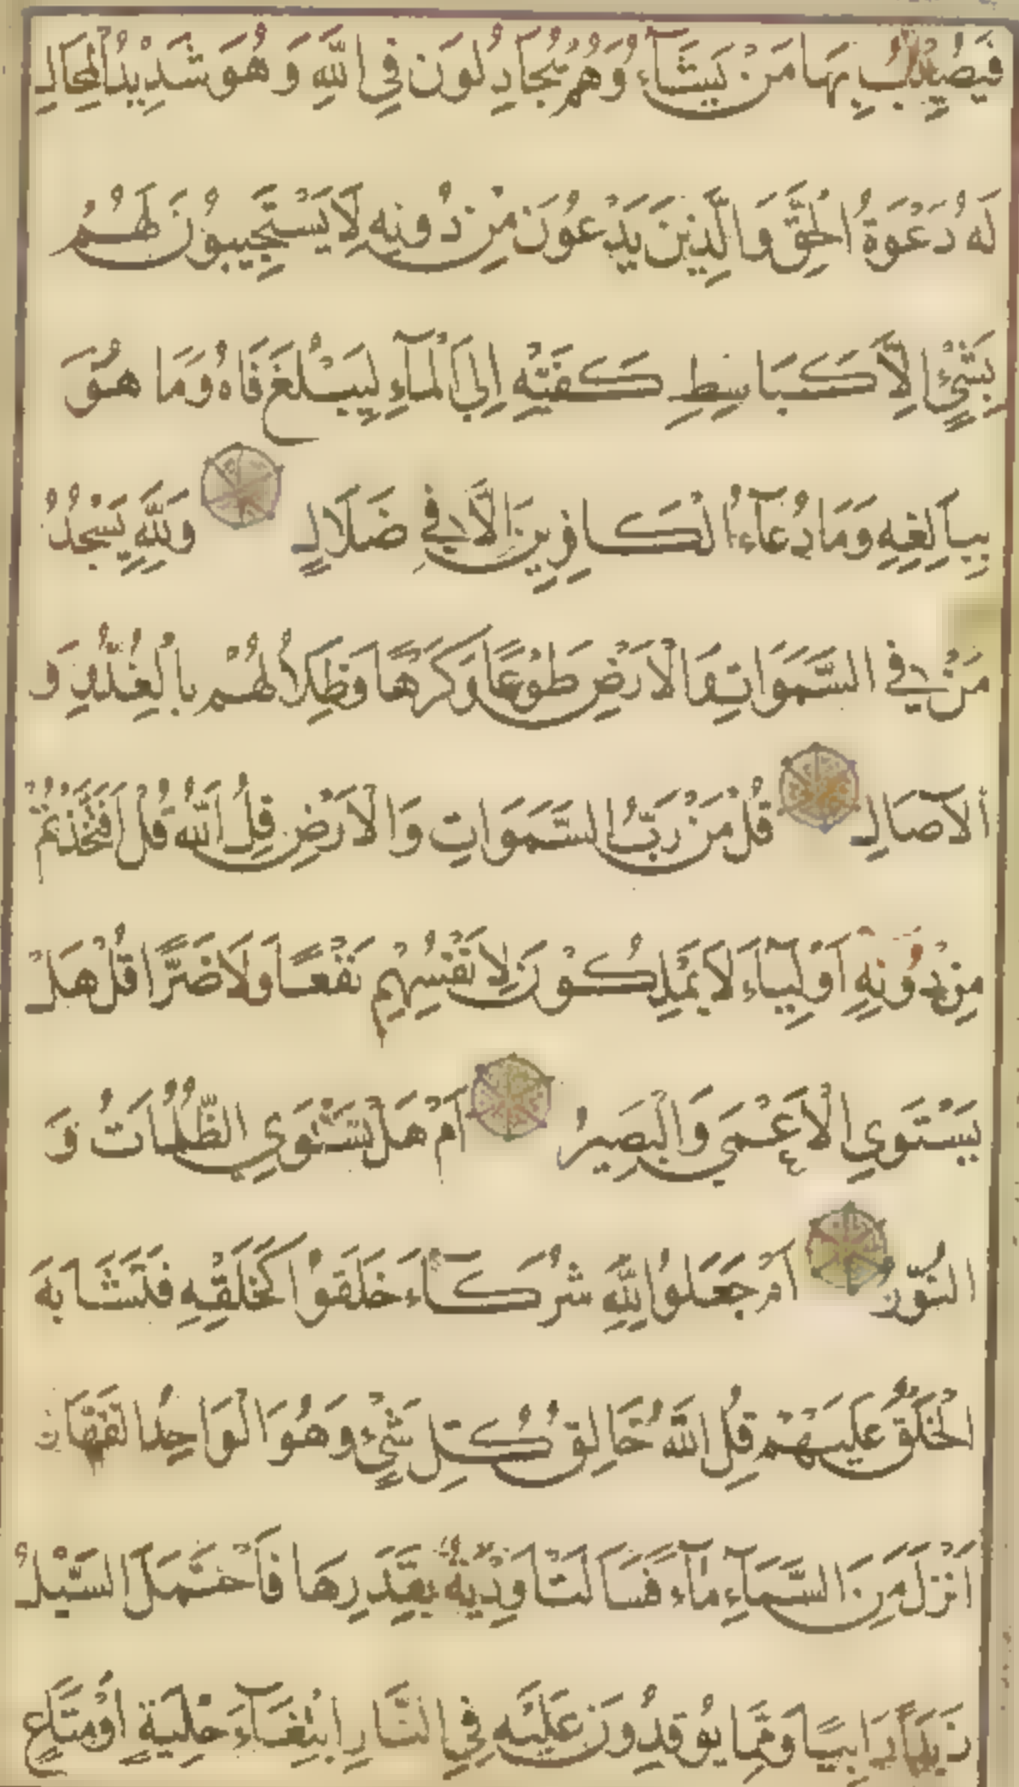 فَيُصِيبُ بِهَا مَنْ يَشَآءُ وَهُمْ يُجَادِلُونَ فِي اللّٰهِ وَهُوَ شَدِيدُ الْمِحَالِ
لَهُ دَعْوَةُ الْحَقِّ وَالَّذِينَ يَدْعُونَ مِنْ دُونِهِ لَا يَسْتَجِيبُونَ لَهُمْ
بِشَيْءٍ اِلَّا كَبَاسِطِ كَفَّيْهِ اِلَى الْمَآءِ لِيَبْلُغَ فَاهُ وَمَا هُوَ
بِبَالِغِهِ وَمَا دُعَآءُ الْكَافِرِينَ اِلَّا فِي ضَلَالٍ وَلِلّٰهِ يَسْجُدُ
مَنْ فِي السَّمَوَاتِ وَالْاَرْضِ طَوْعًا وَكَرْهًا وَظِلَالُهُمْ بِالْغُدُوِّ وَ
الْآصَالِ قُلْ مَنْ رَبُّ السَّمَوَاتِ وَالْاَرْضِ قُلِ اللّٰهُ قُلْ اَفَتَّخَذْتُمْ
مِنْ دُونِهِ اَوْلِيَآءَ لَا يَمْلِكُونَ لِاَنْفُسِهِمْ نَفْعًا وَلَا ضَرًّا قُلْ هَلْ
يَسْتَوِي الْاَعْمَى وَالْبَصِيرُ اَمْ هَلْ تَسْتَوِي الظُّلُمَاتُ وَ
النُّورُ اَمْ جَعَلُوا لِلّٰهِ شُرَكَآءَ خَلَقُوا كَخَلْقِهِ فَتَشَابَهَ
الْخَلْقُ عَلَيْهِمْ قُلِ اللّٰهُ خَالِقُ كُلِّ شَيْءٍ وَهُوَ الْوَاحِدُ الْقَهَّارُ
اَنْزَلَ مِنَ السَّمَآءِ مَآءً فَسَالَتْ اَوْدِيَةٌ بِقَدَرِهَا فَاحْتَمَلَ السَّيْلُ
زَبَدًا رَابِيًا وَمِمَّا يُوقِدُونَ عَلَيْهِ فِي النَّارِ ابْتِغَآءَ حِلْيَةٍ اَوْ مَتَاعٍ